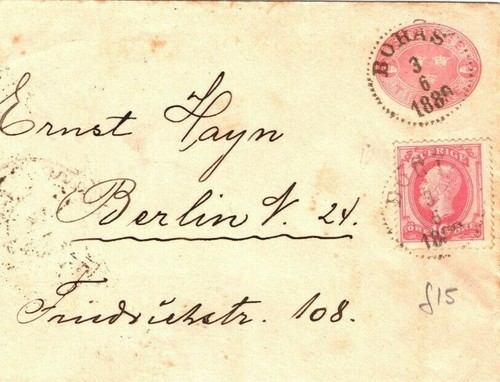 BORÅS
3
6
1889
Ernst Hayn
SVERIGE
BORÅS
3
6
Berlin N. 24.
Friedrichstr. 108.
£15